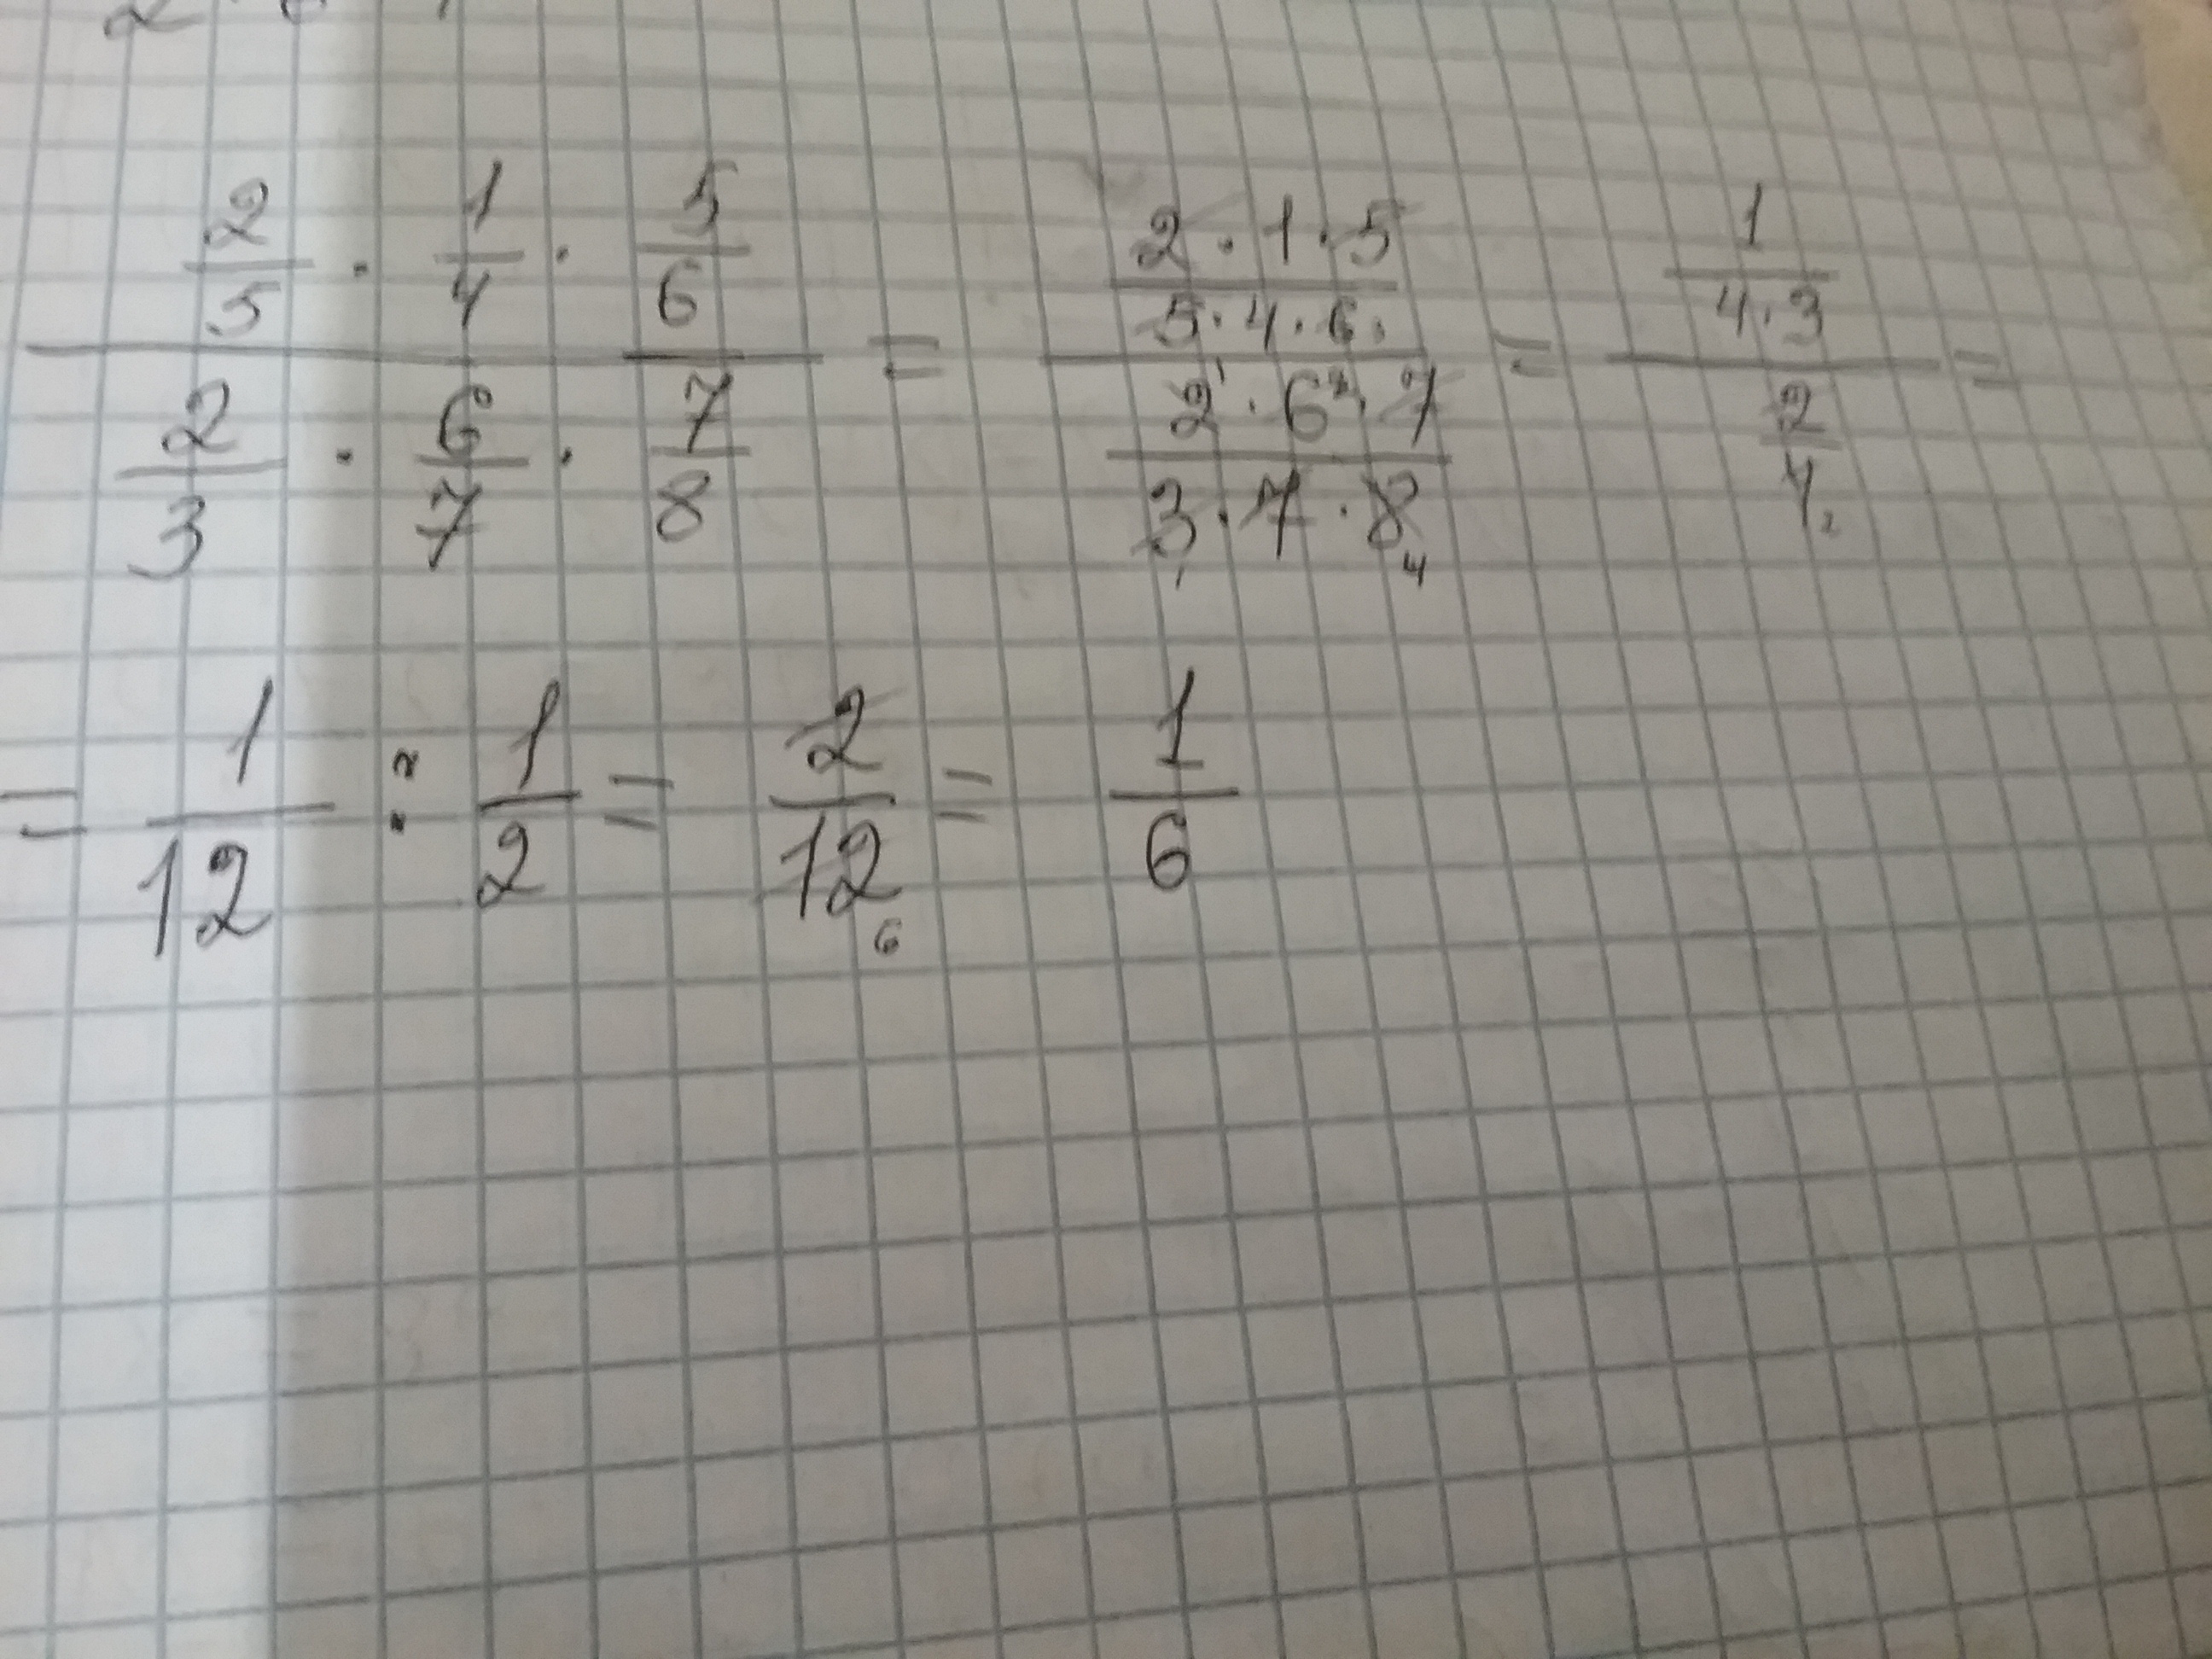 2/5 · 1/4 · 5/6 / 2/3 · 6/7 · 7/8 = 2 · 1 · 5 / 5 · 4 · 6 / 2 · 6 · 7 / 3 · 7 · 8 = 1 / 4 · 3 / 2 / 4 =
= 1/12 : 1/2 = 2/12 = 1/6